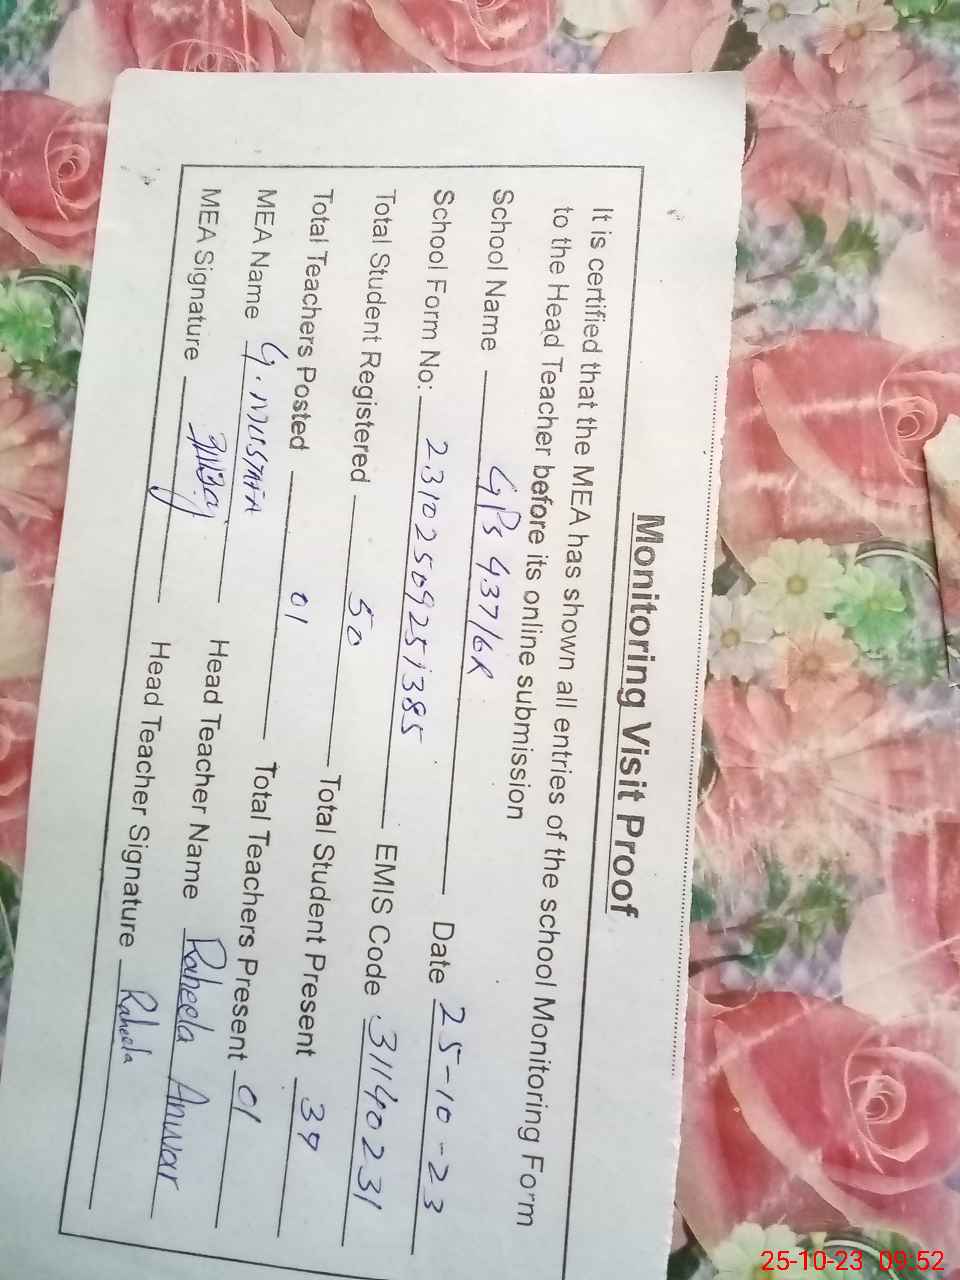 Monitoring Visit Proof
It is certified that the MEA has shown all entries of the school Monitoring Form
to the Head Teacher before its online submission
School Name GPS 437/6R Date 25-10-23
School Form No: 23102509251385 EMIS Code 31140231
Total Student Registered 50 Total Student Present 39
Total Teachers Posted 01 Total Teachers Present 01
MEA Name G. MUSTAFA Head Teacher Name Raheela Anwar
MEA Signature Head Teacher Signature Raheela
25-10-23 09:52